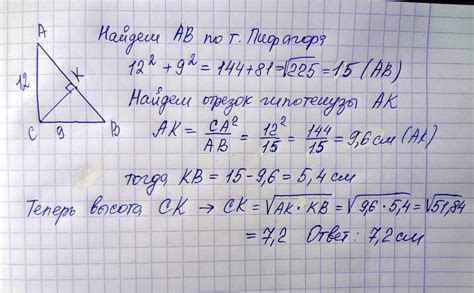 A
12
K
C 9 B
Найдем AB по т. Пифагора
12² + 9² = 144 + 81 = √225 = 15 (AB)
Найдем отрезок гипотенузы AK
AK = CA²/AB = 12²/15 = 144/15 = 9,6 см (AK)
тогда KB = 15 - 9,6 = 5,4 см
Теперь высота CK → CK = √AK · KB = √9,6 · 5,4 = √51,84
= 7,2 Ответ: 7,2 см